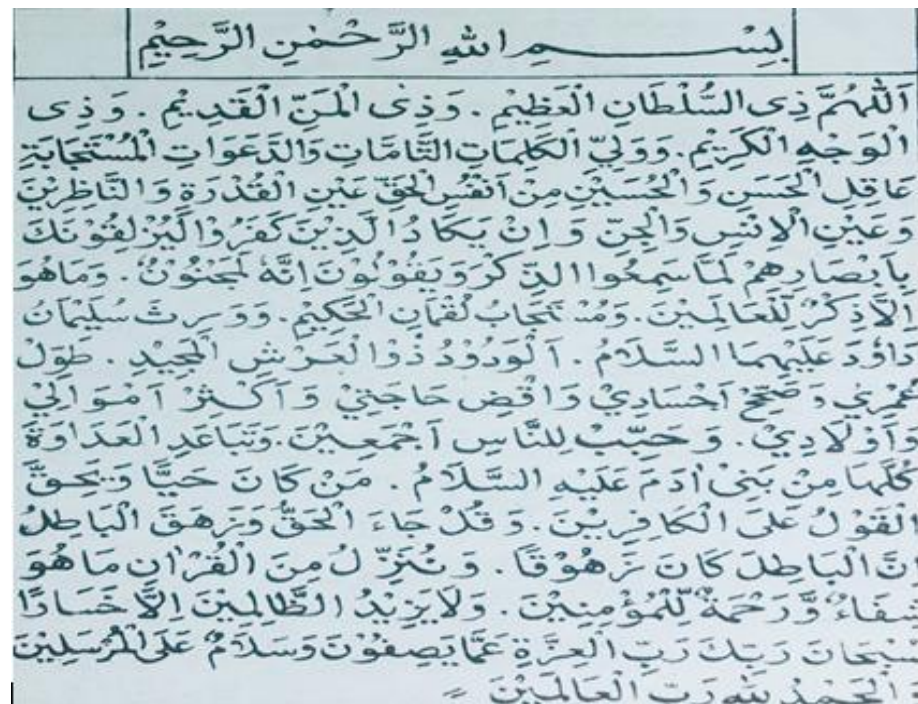 بِسْـــمِ اللهِ الرَّحْمٰنِ الرَّحِيْمِ
اَللّٰهُمَّ ذِى السُّلْطَانِ الْعَظِيْمِ . وَذِى الْمَنِّ الْقَدِيْمِ . وَذِى
الْوَجْهِ الْكَرِيْمِ . وَوَلِيِّ الْكَلِمَاتِ التَّامَّاتِ وَالدَّعَوَاتِ الْمُسْتَجَابَةِ
عَاقِلِ الْحَسَنِ وَالْحُسَيْنِ مِنْ اَنْفُسِ الْحَقِّ عَيْنِ الْقُدْرَةِ وَالنَّاظِرِيْنَ
وَعَيْنِ الْاِنْسِ وَالْجِنِّ وَاِنْ يَكَادُ الَّذِيْنَ كَفَرُوْا لَيُزْلِقُوْنَكَ
بِاَبْصَارِهِمْ لَمَّا سَمِعُوا الذِّكْرَ وَيَقُوْلُوْنَ اِنَّهٗ لَمَجْنُوْنٌ . وَمَا هُوَ
اِلَّا ذِكْرٌ لِلْعَالَمِيْنَ . وَمُسْتَجَابُ لُقْمَانِ الْحَكِيْمِ . وَوَرِثَ سُلَيْمَانُ
دَاوٗدَ عَلَيْهِمَا السَّلَامُ . اَلْوَدُوْدُ ذُو الْعَرْشِ الْمَجِيْدِ . طَوِّلْ
عُمْرِيْ وَصَحِّحْ اَجْسَادِيْ وَاقْضِ حَاجَتِيْ وَاَكْثِرْ اَمْوَالِيْ
وَاَوْلَادِيْ . وَحَبِّبْ لِلنَّاسِ اَجْمَعِيْنَ . وَتَبَاعَدِ الْعَدَاوَةَ
كُلَّهَا مِنْ بَنِىْ اٰدَمَ عَلَيْهِ السَّلَامُ . مَنْ كَانَ حَيًّا وَيَحِقَّ
الْقَوْلُ عَلَى الْكَافِرِيْنَ . وَقُلْ جَاءَ الْحَقُّ وَزَهَقَ الْبَاطِلُ
اِنَّ الْبَاطِلَ كَانَ زَهُوْقًا . وَنُنَزِّلُ مِنَ الْقُرْاٰنِ مَا هُوَ
شِفَاءٌ وَّرَحْمَةٌ لِّلْمُؤْمِنِيْنَ . وَلَا يَزِيْدُ الظَّالِمِيْنَ اِلَّا خَسَارًا
سُبْحَانَ رَبِّكَ رَبِّ الْعِزَّةِ عَمَّا يَصِفُوْنَ وَسَلَامٌ عَلَى الْمُرْسَلِيْنَ
وَالْحَمْدُ لِلّٰهِ رَبِّ الْعَالَمِيْنَ =